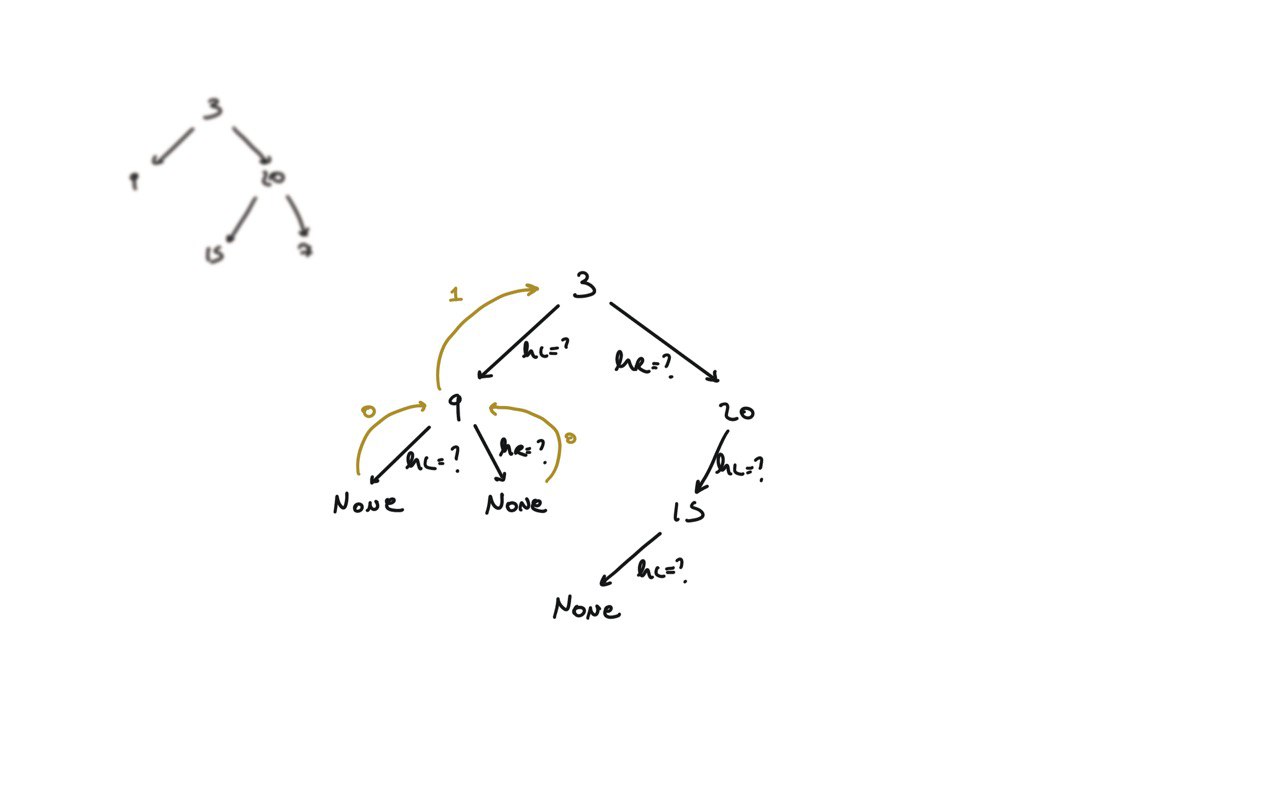 3
9 20
15 7
3
1
hL=? hR=?
0 9 20
0
hL=? hR=? hL=?
None None 15
hL=?
None